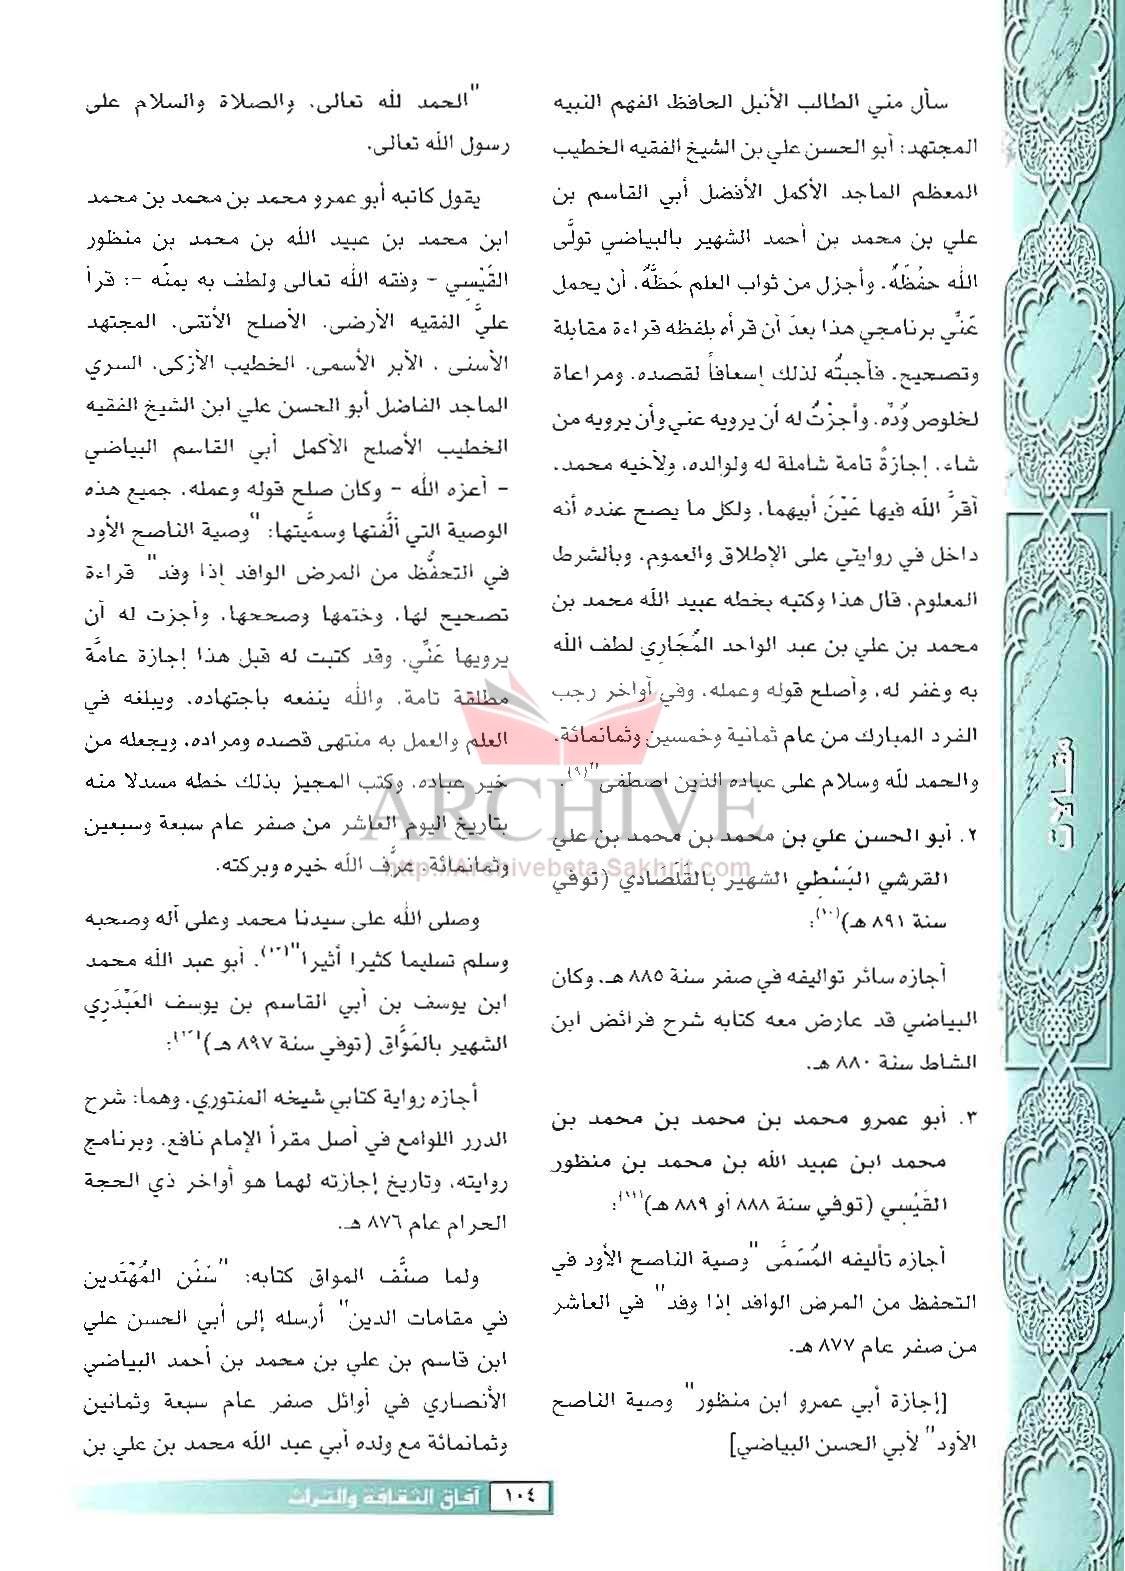 سأل مني الطالب الأنبل الحافظ الفهم النبيه
المجتهد: أبو الحسن علي بن الشيخ الفقيه الخطيب
المعظم الماجد الأكمل الأفضل أبي القاسم بن
علي بن محمد بن أحمد الشهير بالبياضي تولَّى
الله حفْظَهُ، وأجزل من ثواب العلم حَظَّهُ، أن يحمل
عَنِّي برنامجي هذا بعدَ أن قرأه بلفظه قراءة مقابلة
وتصحيح، فأجبتُه لذلك إسعافاً لقصده، ومراعاة
لخلوص وُدِّه، وأجزْتُ له أن يرويه عني وأن يرويه من
شاء، إجازةً تامة شاملة له ولوالده، ولأخيه محمد،
أقرَّ الله فيها عَيْنَ أبيهما، ولكل ما يصح عنده أنه
داخل في روايتي على الإطلاق والعموم، وبالشرط
المعلوم، قال هذا وكتبه بخطه عبيد الله محمد بن
محمد بن علي بن عبد الواحد المُجَاري لطف الله
به وغفر له، وأصلح قوله وعمله، وفي أواخر رجب
الفرد المبارك من عام ثمانية وخمسين وثمانمائة،
والحمد لله وسلام على عباده الذين اصطفى"(٩).
٢. أبو الحسن علي بن محمد بن محمد بن علي
القرشي البَسْطِي الشهير بالقَلَصادي (توفي
سنة ٨٩١ هـ)(١٠):
أجازه سائر تواليفه في صفر سنة ٨٨٥ هـ، وكان
البياضي قد عارض معه كتابه شرح فرائض ابن
الشاط سنة ٨٨٠ هـ.
٣. أبو عمرو محمد بن محمد بن محمد بن
محمد ابن عبيد الله بن محمد بن منظور
القَيْسِي (توفي سنة ٨٨٨ أو ٨٨٩ هـ)(١١):
أجازه تأليفه المُسَمَّى "وصية الناصح الأود في
التحفظ من المرض الوافد إذا وفد" في العاشر
من صفر عام ٨٧٧ هـ.
[إجازة أبي عمرو ابن منظور" وصية الناصح
الأود" لأبي الحسن البياضي]
"الحمد لله تعالى، والصلاة والسلام على
رسول الله تعالى.
يقول كاتبه أبو عمرو محمد بن محمد بن محمد
ابن محمد بن عبيد الله بن محمد بن منظور
القَيْسِي - وفقه الله تعالى ولطف به بمنِّه -: قرأ
عليَّ الفقيه الأرضى، الأصلح الأتقى، المجتهد
الأسنى ، الأبر الأسمى، الخطيب الأزكى، السري
الماجد الفاضل أبو الحسن علي ابن الشيخ الفقيه
الخطيب الأصلح الأكمل أبي القاسم البياضي
- أعزه الله - وكان صلح قوله وعمله، جميع هذه
الوصية التي ألَّفتها وسميَّتها: "وصية الناصح الأود
في التحفُّظ من المرض الوافد إذا وفد" قراءة
تصحيح لها، وختمها وصححها، وأجزت له أن
يرويها عَنِّي، وقد كتبت له قبل هذا إجازة عامَّة
مطلقة تامة، والله ينفعه باجتهاده، ويبلغه في
العلم والعمل به منتهى قصده ومراده، ويجعله من
خير عباده، وكتب المجيز بذلك خطه مسدلا منه
بتاريخ اليوم العاشر من صفر عام سبعة وسبعين
وثمانمائة عرَّف الله خيره وبركته.
وصلى الله على سيدنا محمد وعلى آله وصحبه
وسلم تسليما كثيرا أثيرا"(١٢). أبو عبد الله محمد
ابن يوسف بن أبي القاسم بن يوسف العَبْدَرِي
الشهير بالمَوَّاق (توفي سنة ٨٩٧ هـ):
أجازه رواية كتابي شيخه المنتوري، وهما: شرح
الدرر اللوامع في أصل مقرأ الإمام نافع، وبرنامج
روايته، وتاريخ إجازته لهما هو أواخر ذي الحجة
الحرام عام ٨٧٦ هـ.
ولما صنَّف المواق كتابه: "سَنَن المُهْتَدين
في مقامات الدين" أرسله إلى أبي الحسن علي
ابن قاسم بن علي بن محمد بن أحمد البياضي
الأنصاري في أوائل صفر عام سبعة وثمانين
وثمانمائة مع ولده أبي عبد الله محمد بن علي بن
مقالات
ARCHIVE
http://Archivebeta.Sakhrit.com
١٠٤ آفاق الثقافة والتراث